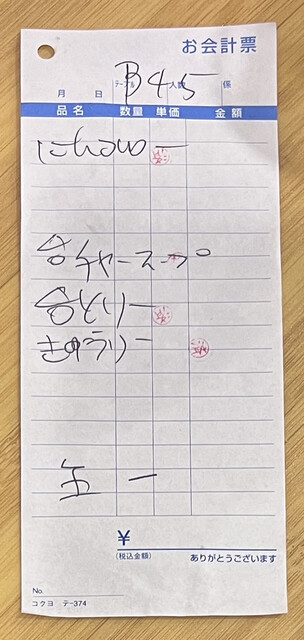 お会計票
月 日 テーブル B45 人数 係
品名 数量 単価 金額
合チャースープ
合とり一
きゅうり一
玉 一
¥
(税込金額) ありがとうございます
No.
コクヨ テ-374